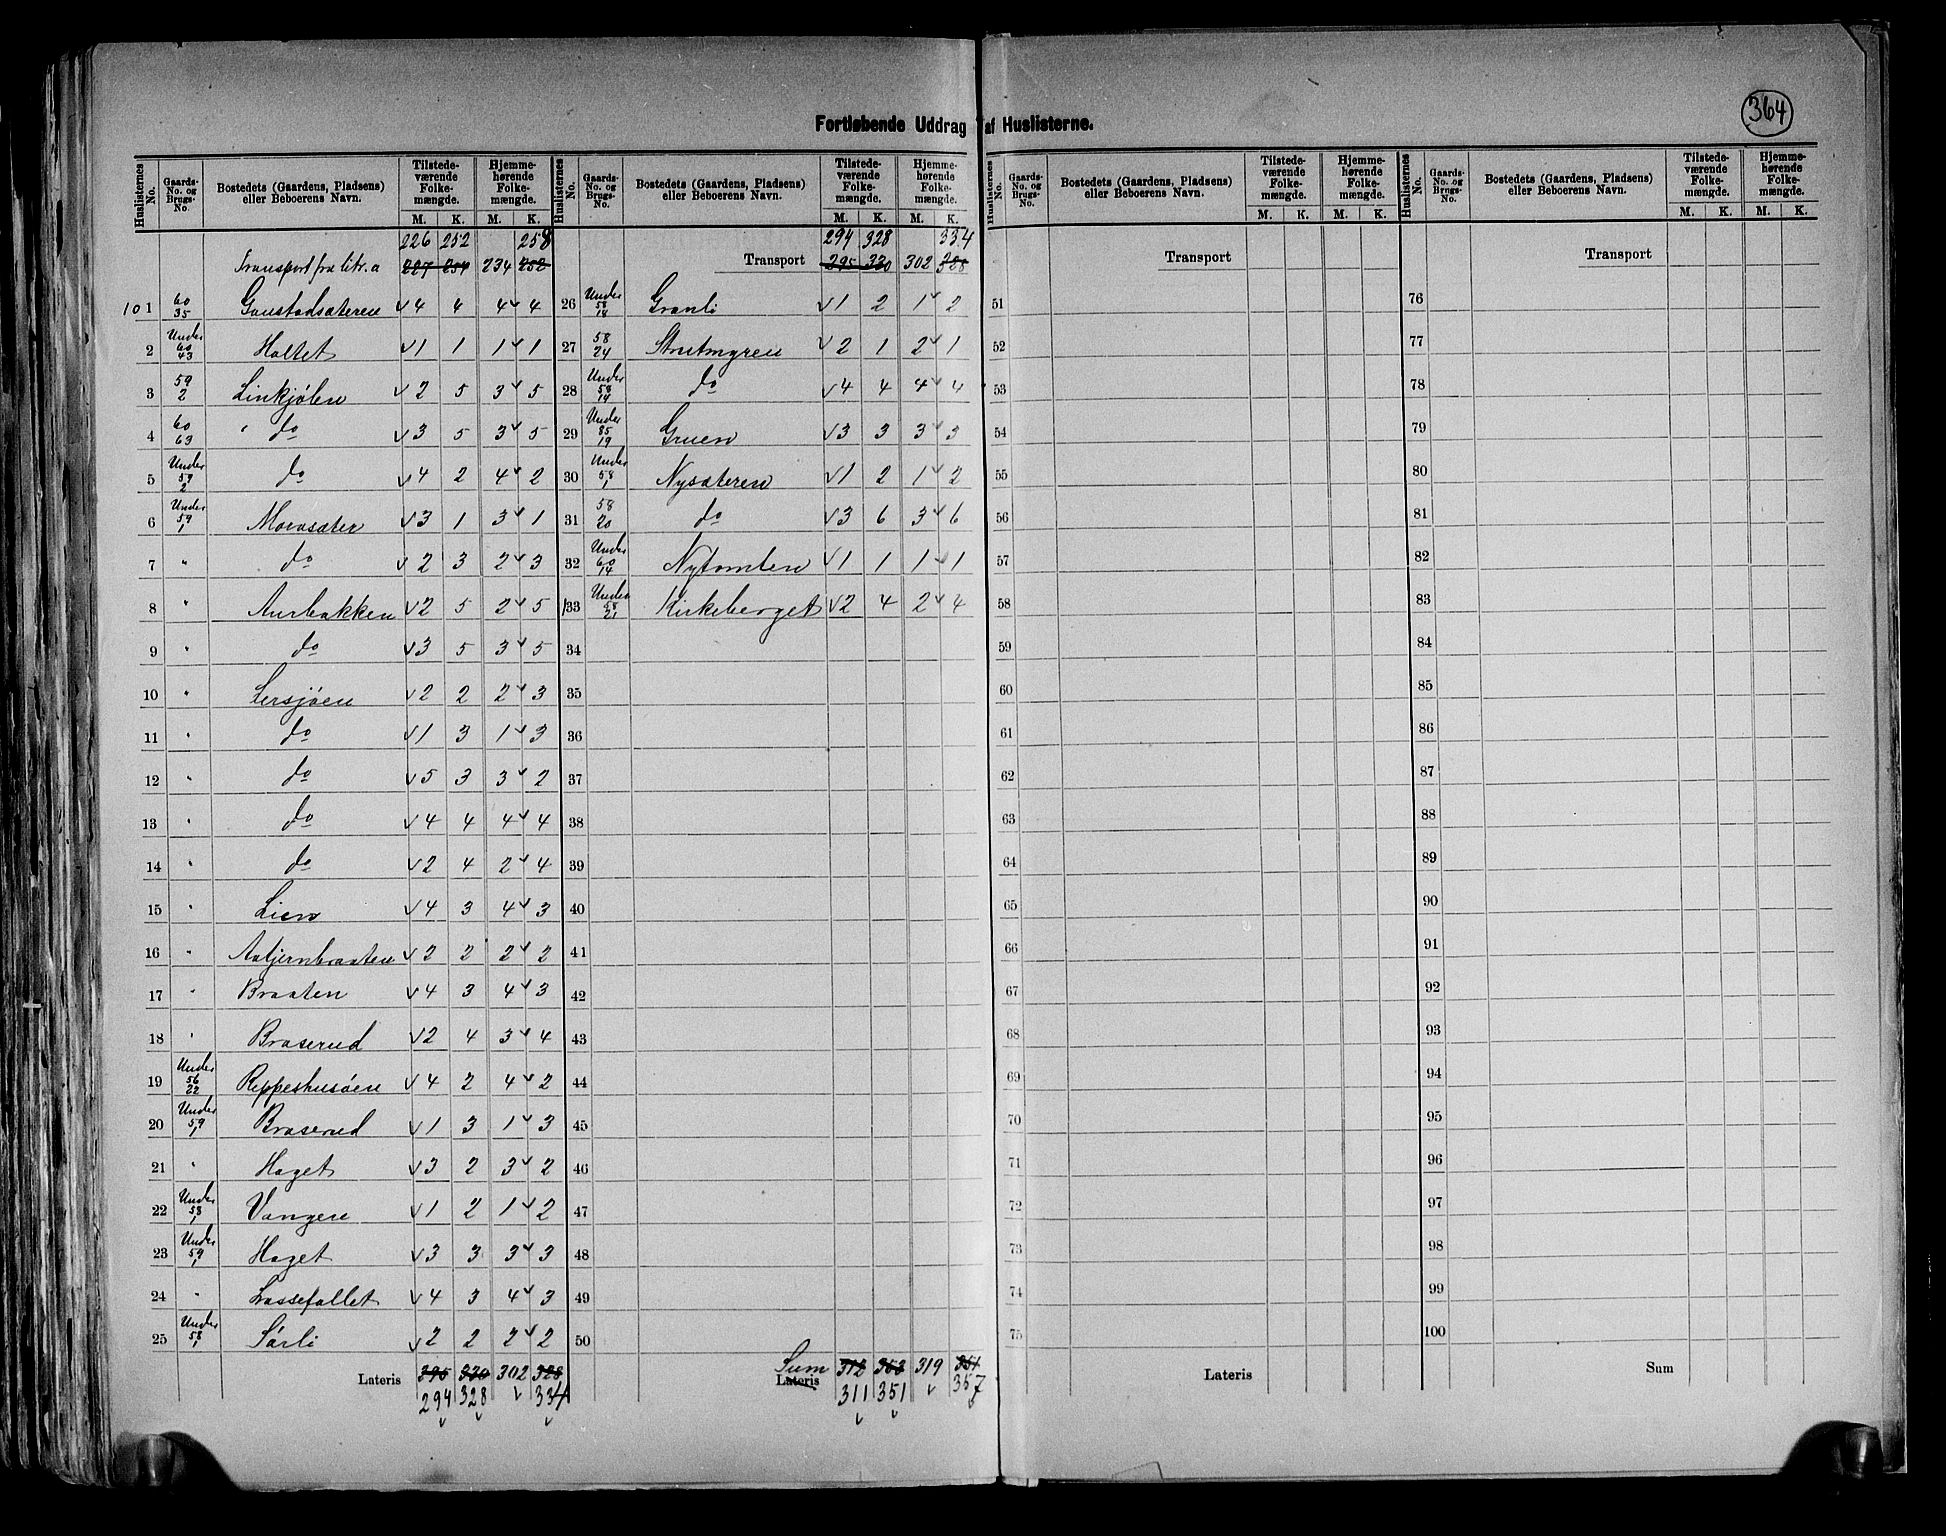 364
Fortløbende Uddrag af Huslisterne.
Huslisternes No. | Gaards-No. og Brugs-No. | Bostedets (Gaardens, Pladsens) eller Beboerens Navn. | Tilstedeværende Folkemængde. M. K. | Hjemmehørende Folkemængde. M. K.
226 252 258
Transport fra litr. a 227 254 234 252
101 60/35 Gaustadsæteren 4 4 4 4
2 Under 60/43 Holtet 1 1 1 1
3 59/2 Linkjølen 2 5 3 5
4 60/63 do 3 5 3 5
5 Under 59/2 do 4 2 4 2
6 Under 59/1 Morasæter 3 1 3 1
7 " do 2 3 2 3
8 " Aurbakken 2 5 2 5
9 " do 3 5 3 5
10 " Lersjøen 2 2 2 3
11 " do 1 3 1 3
12 " do 5 3 3 2
13 " do 4 4 4 4
14 " do 2 4 2 4
15 " Lien 4 3 4 3
16 " Aatjernbraaten 2 2 2 2
17 " Braaten 4 3 4 3
18 " Braserud 2 4 3 4
19 Under 56/22 Reppeshusøen 4 2 4 2
20 Under 59/1 Braserud 1 3 1 3
21 " Haget 3 2 3 2
22 Under 58/1 Vangen 1 2 1 2
23 Under 59/1 Haget 3 3 3 3
24 " Lassefallet 4 3 4 3
25 Under 58/1 Sørli 2 2 2 2
Lateris 295 330 302 328
294 328 334
Huslisternes No. | Gaards-No. og Brugs-No. | Bostedets (Gaardens, Pladsens) eller Beboerens Navn. | Tilstedeværende Folkemængde. M. K. | Hjemmehørende Folkemængde. M. K.
294 328 334
Transport 295 330 302 328
26 Under 58/14 Granli 1 2 1 2
27 58/24 Strutmyren 2 1 2 1
28 Under 58/14 do 4 4 4 4
29 Under 85/19 Gruen 3 3 3 3
30 Under 58/1 Nysæteren 1 2 1 2
31 58/20 do 3 6 3 6
32 Under 60/14 Nytomten 1 1 1 1
133 Under 58/21 Kirkeberget 2 4 2 4
34
35
36
37
38
39
40
41
42
43
44
45
46
47
48
49
50
Sum Lateris 312 353 319 351
311 351 357
Huslisternes No. | Gaards-No. og Brugs-No. | Bostedets (Gaardens, Pladsens) eller Beboerens Navn. | Tilstedeværende Folkemængde. M. K. | Hjemmehørende Folkemængde. M. K.
Transport
51
52
53
54
55
56
57
58
59
60
61
62
63
64
65
66
67
68
69
70
71
72
73
74
75
Lateris
Huslisternes No. | Gaards-No. og Brugs-No. | Bostedets (Gaardens, Pladsens) eller Beboerens Navn. | Tilstedeværende Folkemængde. M. K. | Hjemmehørende Folkemængde. M. K.
Transport
76
77
78
79
80
81
82
83
84
85
86
87
88
89
90
91
92
93
94
95
96
97
98
99
100
Sum